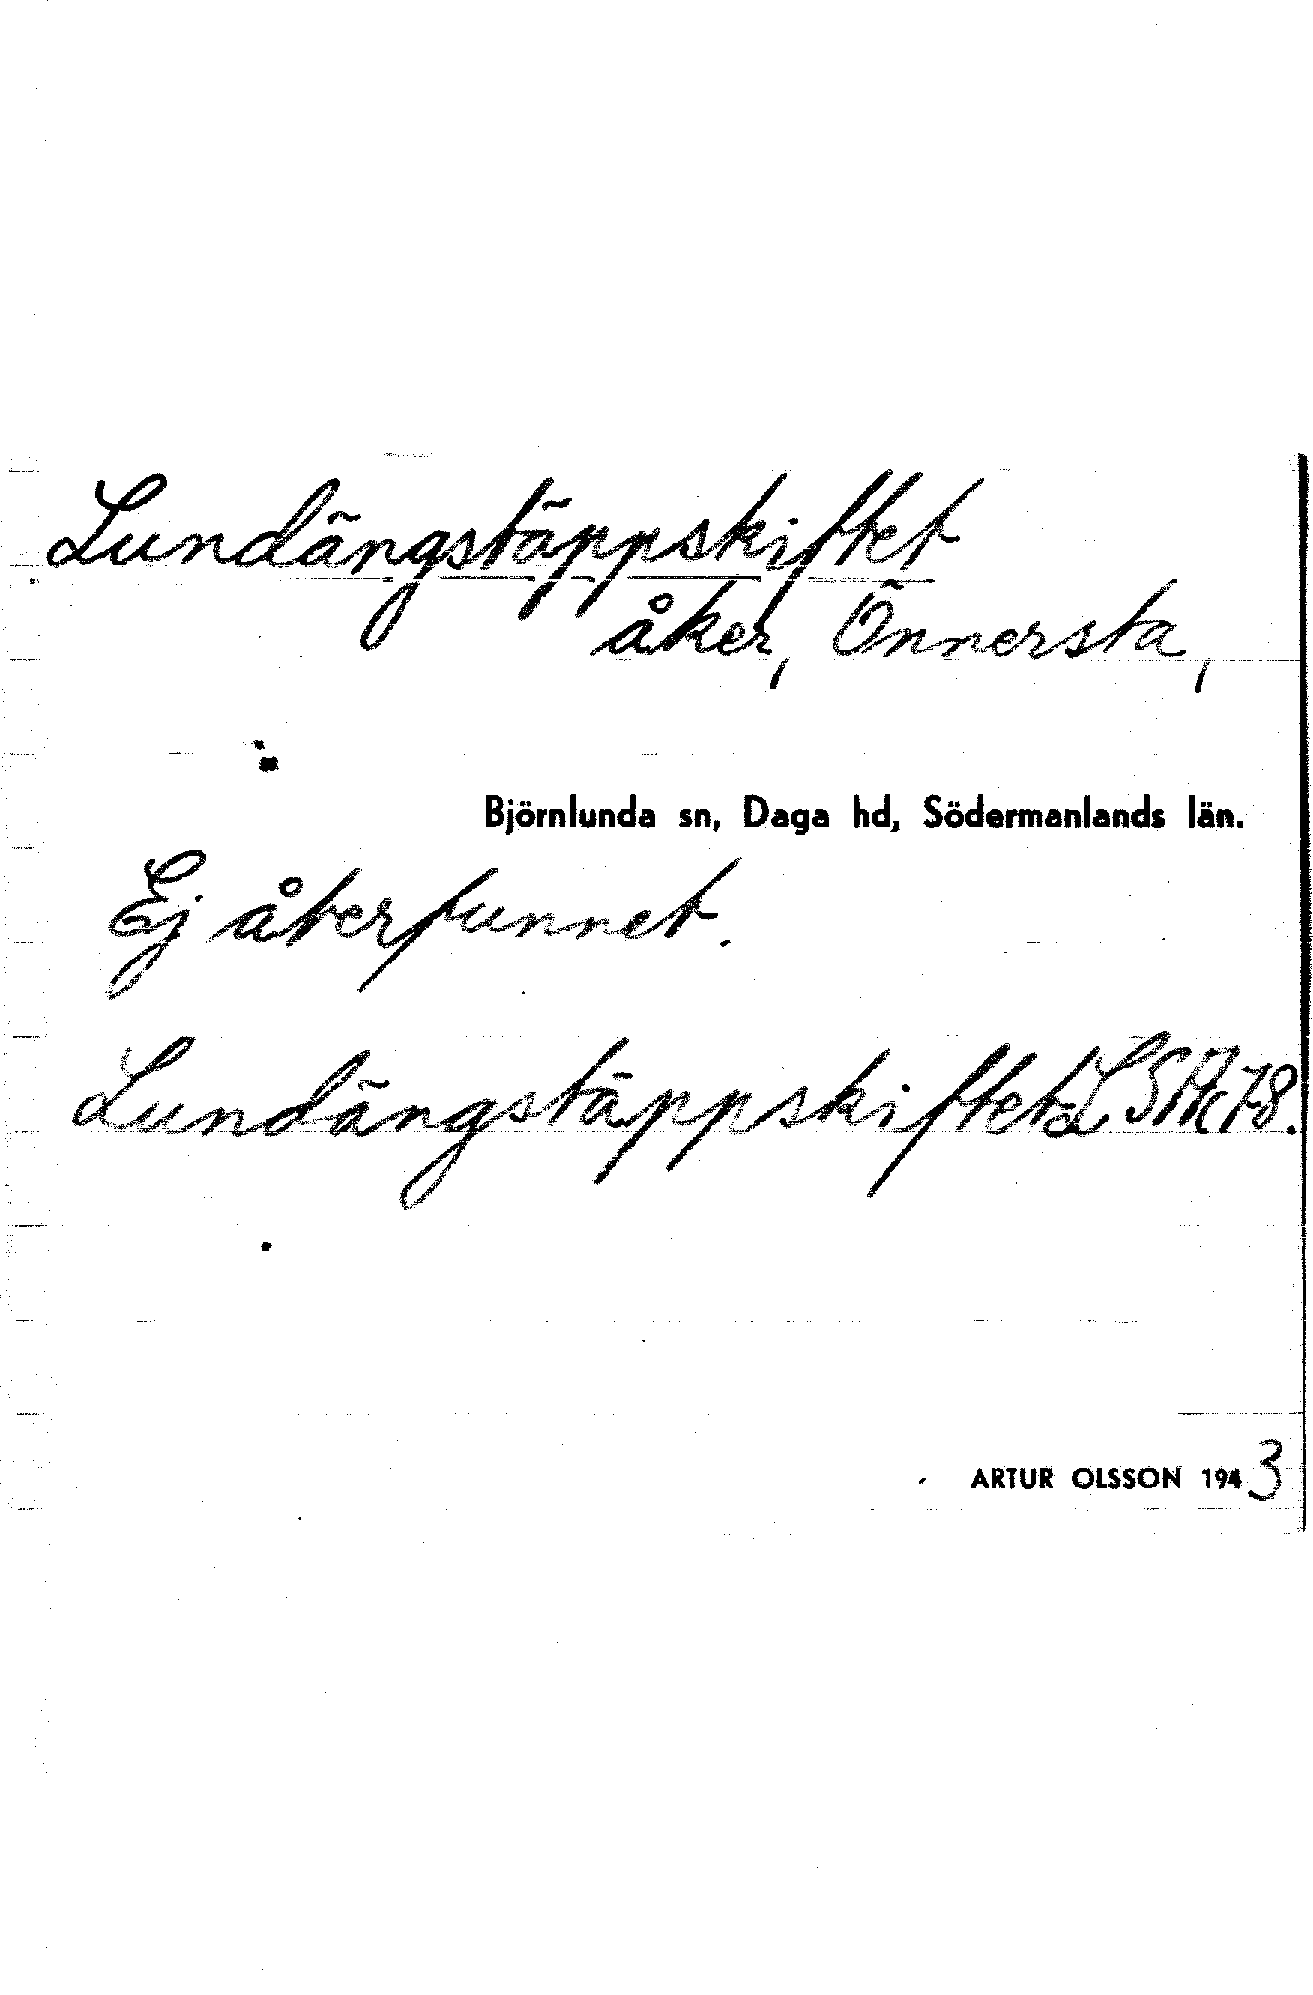 Lundängstäppskiftet
åker, Önnersta,
Björnlunda sn, Daga hd, Södermanlands län.
Ej återfunnet.
Lundängstäppskiftet
ARTUR OLSSON 1943